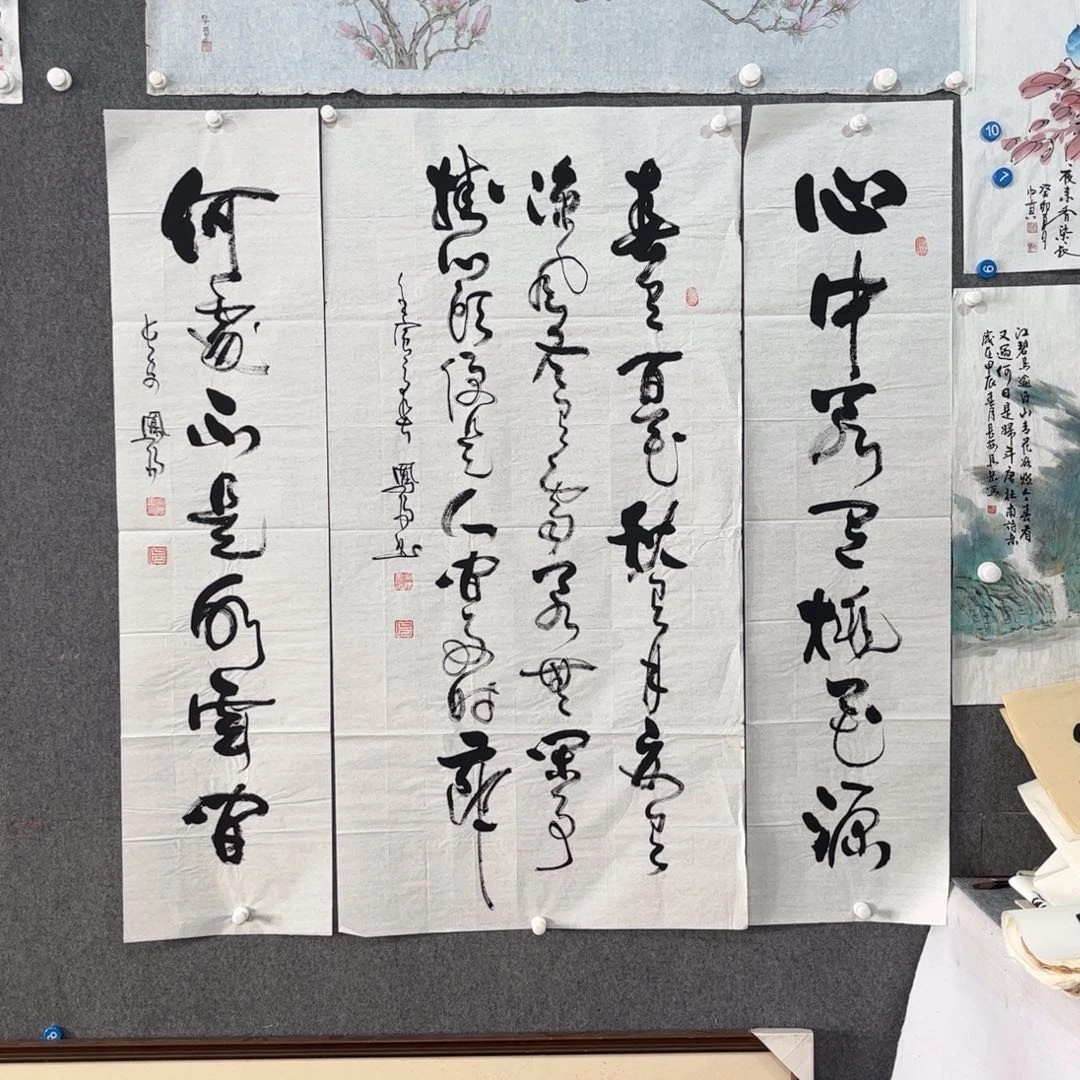 心中若有桃花源
春有百花秋有月夏有
涼風冬有雪若無閑事
掛心頭便是人間好時節
何處不是水雲間
江碧鳥逾白山青花欲燃今春看
又過何日是歸年唐杜甫詩意
歲在甲辰春月長安
夜來香染衣
癸卯
10
7
9